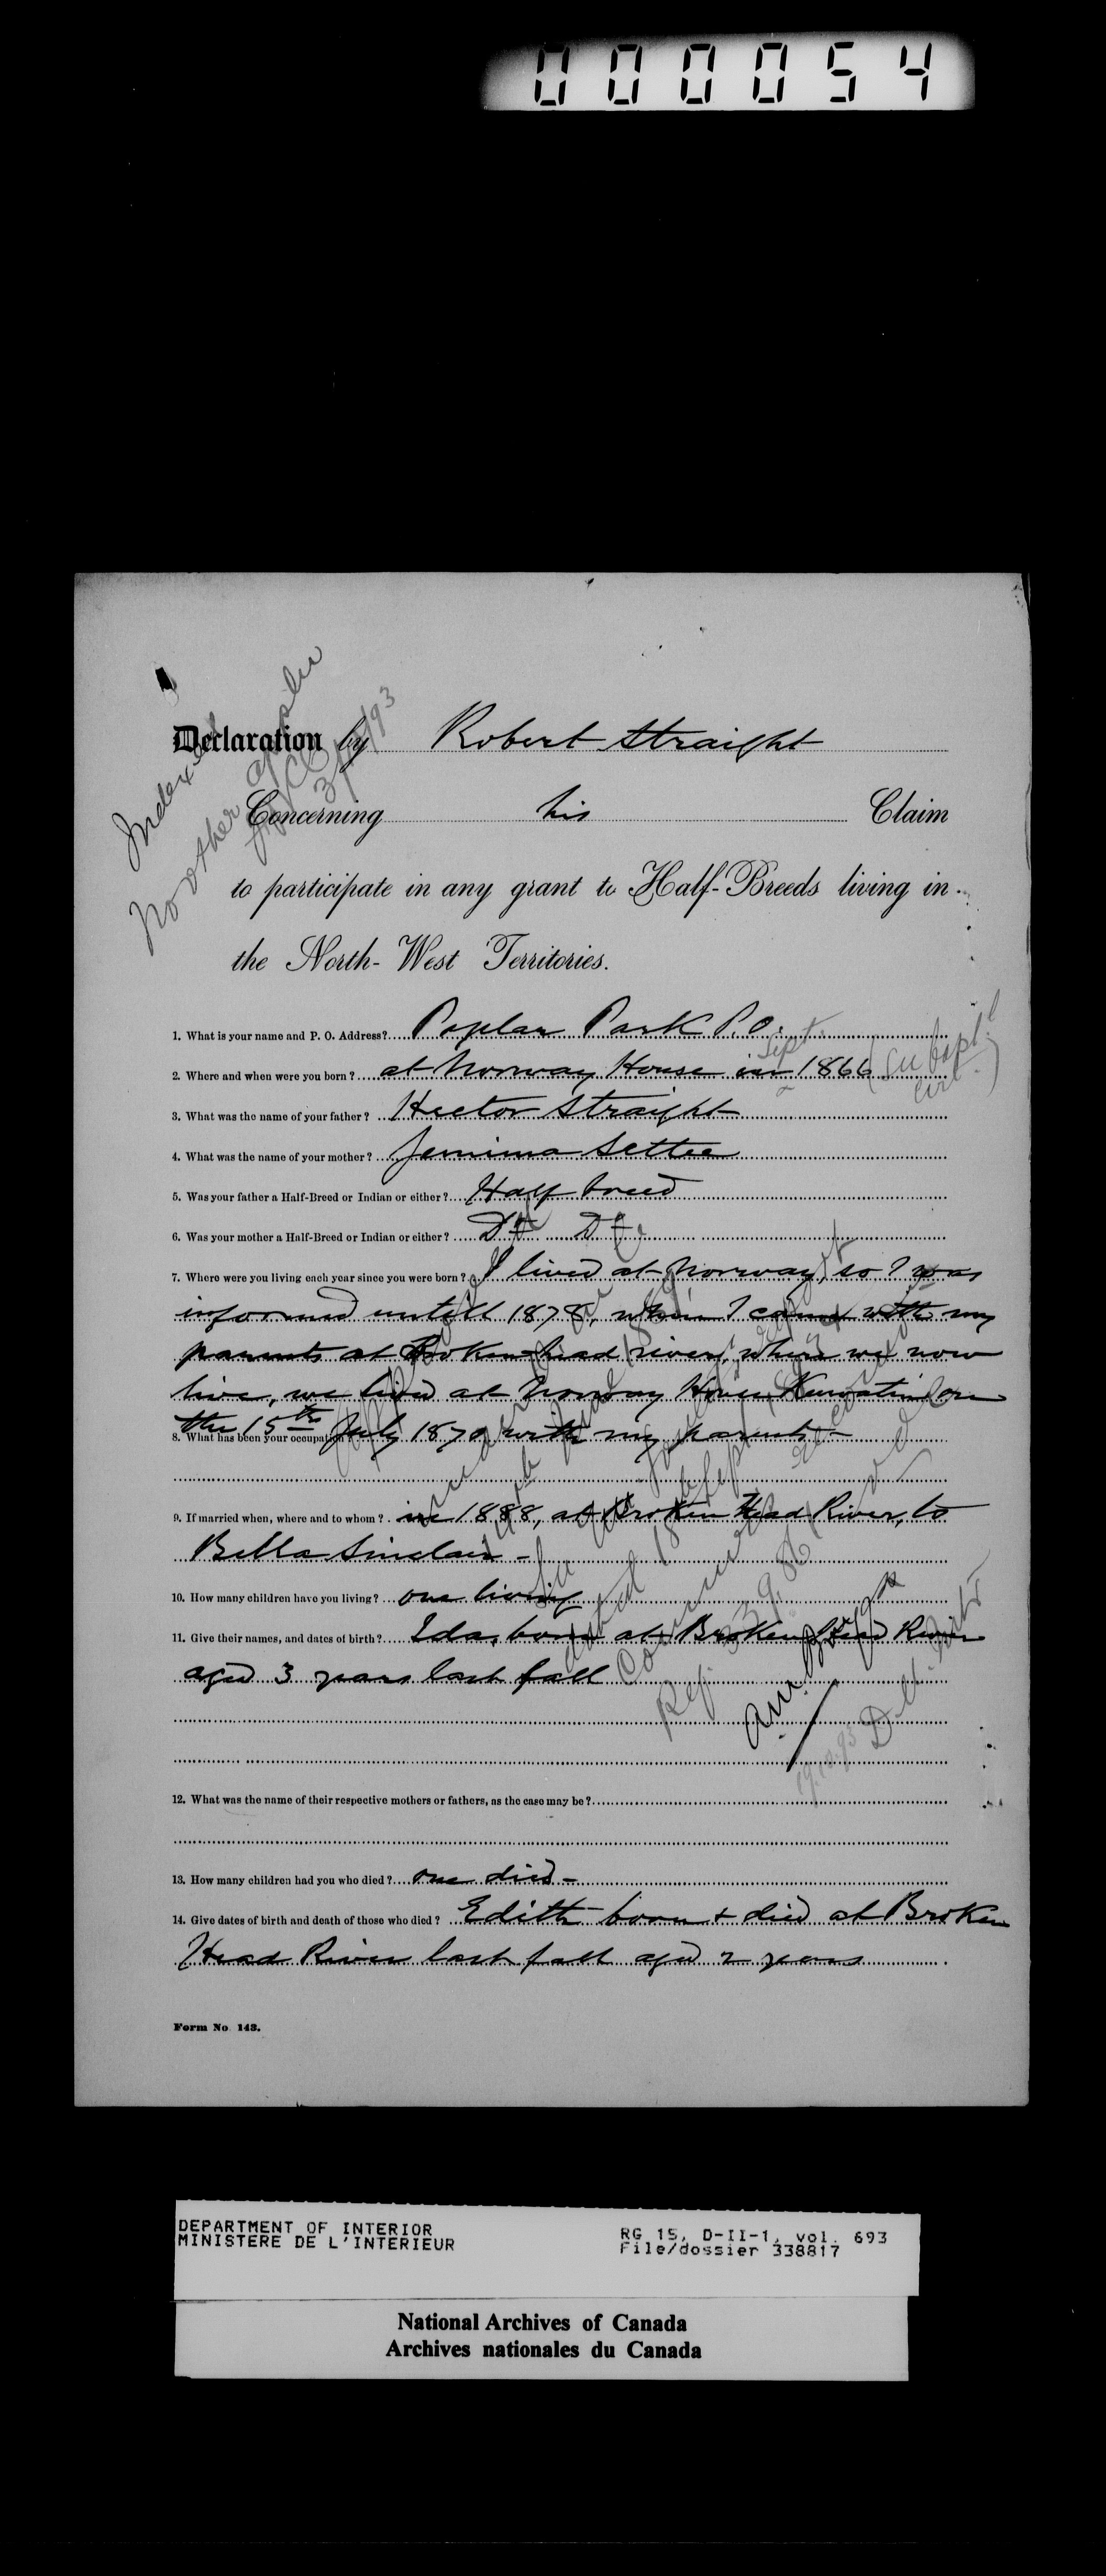 000054
Indexed
No other
Declaration by Robert Straight
Concerning his Claim
to participate in any grant to Half-Breeds living in
the North-West Territories.
1. What is your name and P. O. Address? Poplar Park P.O.
Sept.
2. Where and when were you born? at Norway House in 1866 (See bapt'l
cert.)
3. What was the name of your father? Hector Straight
4. What was the name of your mother? Jemima Settee
5. Was your father a Half-Breed or Indian or either? Half breed
6. Was your mother a Half-Breed or Indian or either? Do Do
7. Where were you living each year since you were born? I lived at Norway, so I was
informed untill 1878, when I came with my
parents at Broken head river, where we now
live, we lived at Norway House Keewatin on
the 15th July 1870 with my parents -
8. What has been your occupation
9. If married when, where and to whom? in 1888, at Broken Head River, to
Bella Sinclair -
10. How many children have you living? one living
11. Give their names, and dates of birth? Ida, born at Broken Head River
aged 3 years last fall
12. What was the name of their respective mothers or fathers, as the case may be?
13. How many children had you who died? one died -
14. Give dates of birth and death of those who died? Edith born + died at Broken
Head River last fall aged 2 years
Form No. 143.
DEPARTMENT OF INTERIOR
MINISTERE DE L'INTERIEUR
RG 15, D-II-1, vol. 693
File/dossier 338817
National Archives of Canada
Archives nationales du Canada